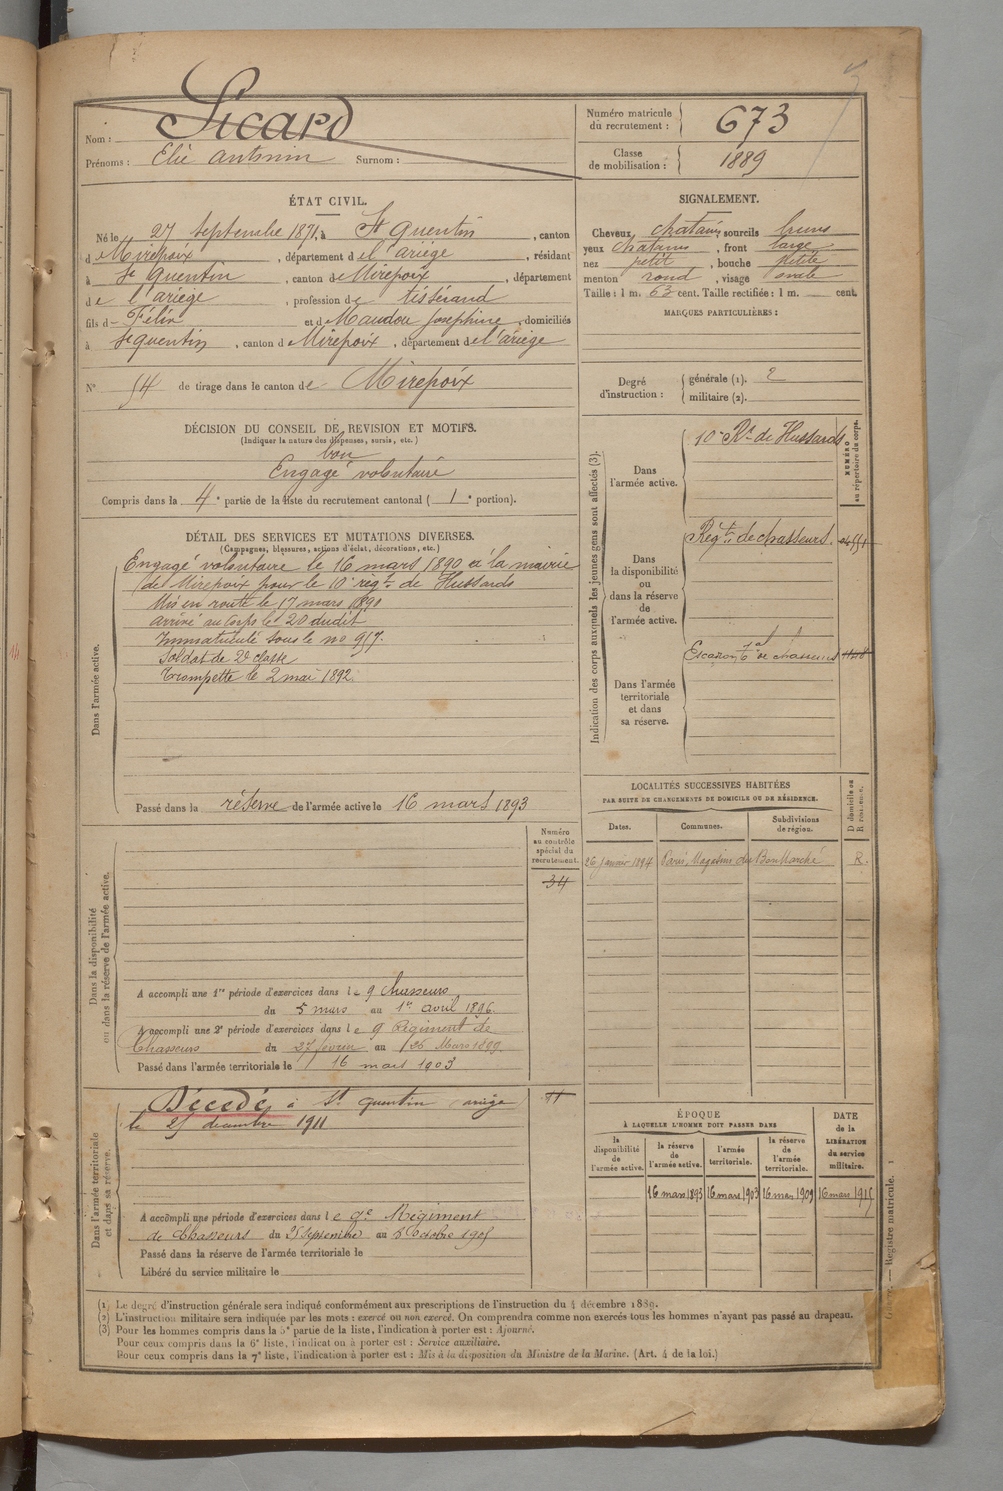 Nom : Sicard
Prénoms : Elie antonin Surnom :
Numéro matricule du recrutement : 673
Classe de mobilisation : 1889
ÉTAT CIVIL.
Né le 27 septembre 1871, à St quentin, canton
de Mirepoix, département de l'ariège, résidant
à St quentin, canton de Mirepoix, département
de l'ariège, profession de tisserand
fils d- Félix et d Maudou Josephine, domiciliés
à St quentin, canton d Mirepoix, département de l'ariège
N° 54 de tirage dans le canton de Mirepoix
SIGNALEMENT.
Cheveux chatains, sourcils bruns
yeux chatains, front large
nez petit, bouche petite
menton rond, visage ovale
Taille : 1 m. 63 cent. Taille rectifiée : 1 m. cent.
MARQUES PARTICULIÈRES :
Degré d'instruction : générale (1). 2
militaire (2).
DÉCISION DU CONSEIL DE REVISION ET MOTIFS.
(Indiquer la nature des dispenses, sursis, etc.)
bon
Engagé volontaire
Compris dans la 4e partie de la liste du recrutement cantonal ( 1e portion).
DÉTAIL DES SERVICES ET MUTATIONS DIVERSES.
(Campagnes, blessures, actions d'éclat, décorations, etc.)
Dans l'armée active.
Engagé volontaire le 16 mars 1890 à la mairie
de Mirepoix pour le 10e régt. de Hussards
Mis en route le 17 mars 1890
arrivé au corps le 20 dudit
Immatriculé sous le no 917.
Soldat de 2e classe
Trompette le 2 mai 1892.
Passé dans la réserve de l'armée active le 16 mars 1893
Indication des corps auxquels les jeunes gens sont affectés (3).
NUMÉRO au répertoire du corps.
Dans l'armée active.
10e Rt de Hussards
Dans la disponibilité ou dans la réserve de l'armée active.
Régt. de chasseurs.
Dans l'armée territoriale et dans sa réserve.
de chasseurs
LOCALITÉS SUCCESSIVES HABITÉES
PAR SUITE DE CHANGEMENTS DE DOMICILE OU DE RÉSIDENCE.
Dates. Communes. Subdivisions de région. D domicile ou R résidence.
26 Janvier 1894 Paris, Magasins du Bon Marché R.
Dans la disponibilité ou dans la réserve de l'armée active.
Numéro au contrôle spécial du recrutement.
34
A accompli une 1re période d'exercices dans le 9 Chasseurs
du 5 mars au 1er avril 1896.
A accompli une 2e période d'exercices dans le 9 Régiment de
Chasseurs du 27 février au 26 Mars 1899
Passé dans l'armée territoriale le 16 mars 1903
Dans l'armée territoriale et dans sa réserve.
Décédé à St quentin ariège
le 25 décembre 1911
11
A accompli une période d'exercices dans le 9e Régiment
de Chasseurs du 25 Septembre au 8 Octobre 1905
Passé dans la réserve de l'armée territoriale le
Libéré du service militaire le
ÉPOQUE
À LAQUELLE L'HOMME DOIT PASSER DANS
la disponibilité de l'armée active. la réserve de l'armée active. l'armée territoriale. la réserve de l'armée territoriale.
DATE de la LIBÉRATION du service militaire.
16 mars 1893 16 mars 1903 16 mars 1909 16 mars 1915
(1) Le degré d'instruction générale sera indiqué conformément aux prescriptions de l'instruction du 4 décembre 1889.
(2) L'instruction militaire sera indiquée par les mots : exercé ou non exercé. On comprendra comme non exercés tous les hommes n'ayant pas passé au drapeau.
(3) Pour les hommes compris dans la 5e partie de la liste, l'indication à porter est : Ajourné.
Pour ceux compris dans la 6e liste, l'indication à porter est : Service auxiliaire.
Pour ceux compris dans la 7e liste, l'indication à porter est : Mis à la disposition du Ministre de la Marine. (Art. 4 de la loi.)
— Registre matricule. 1